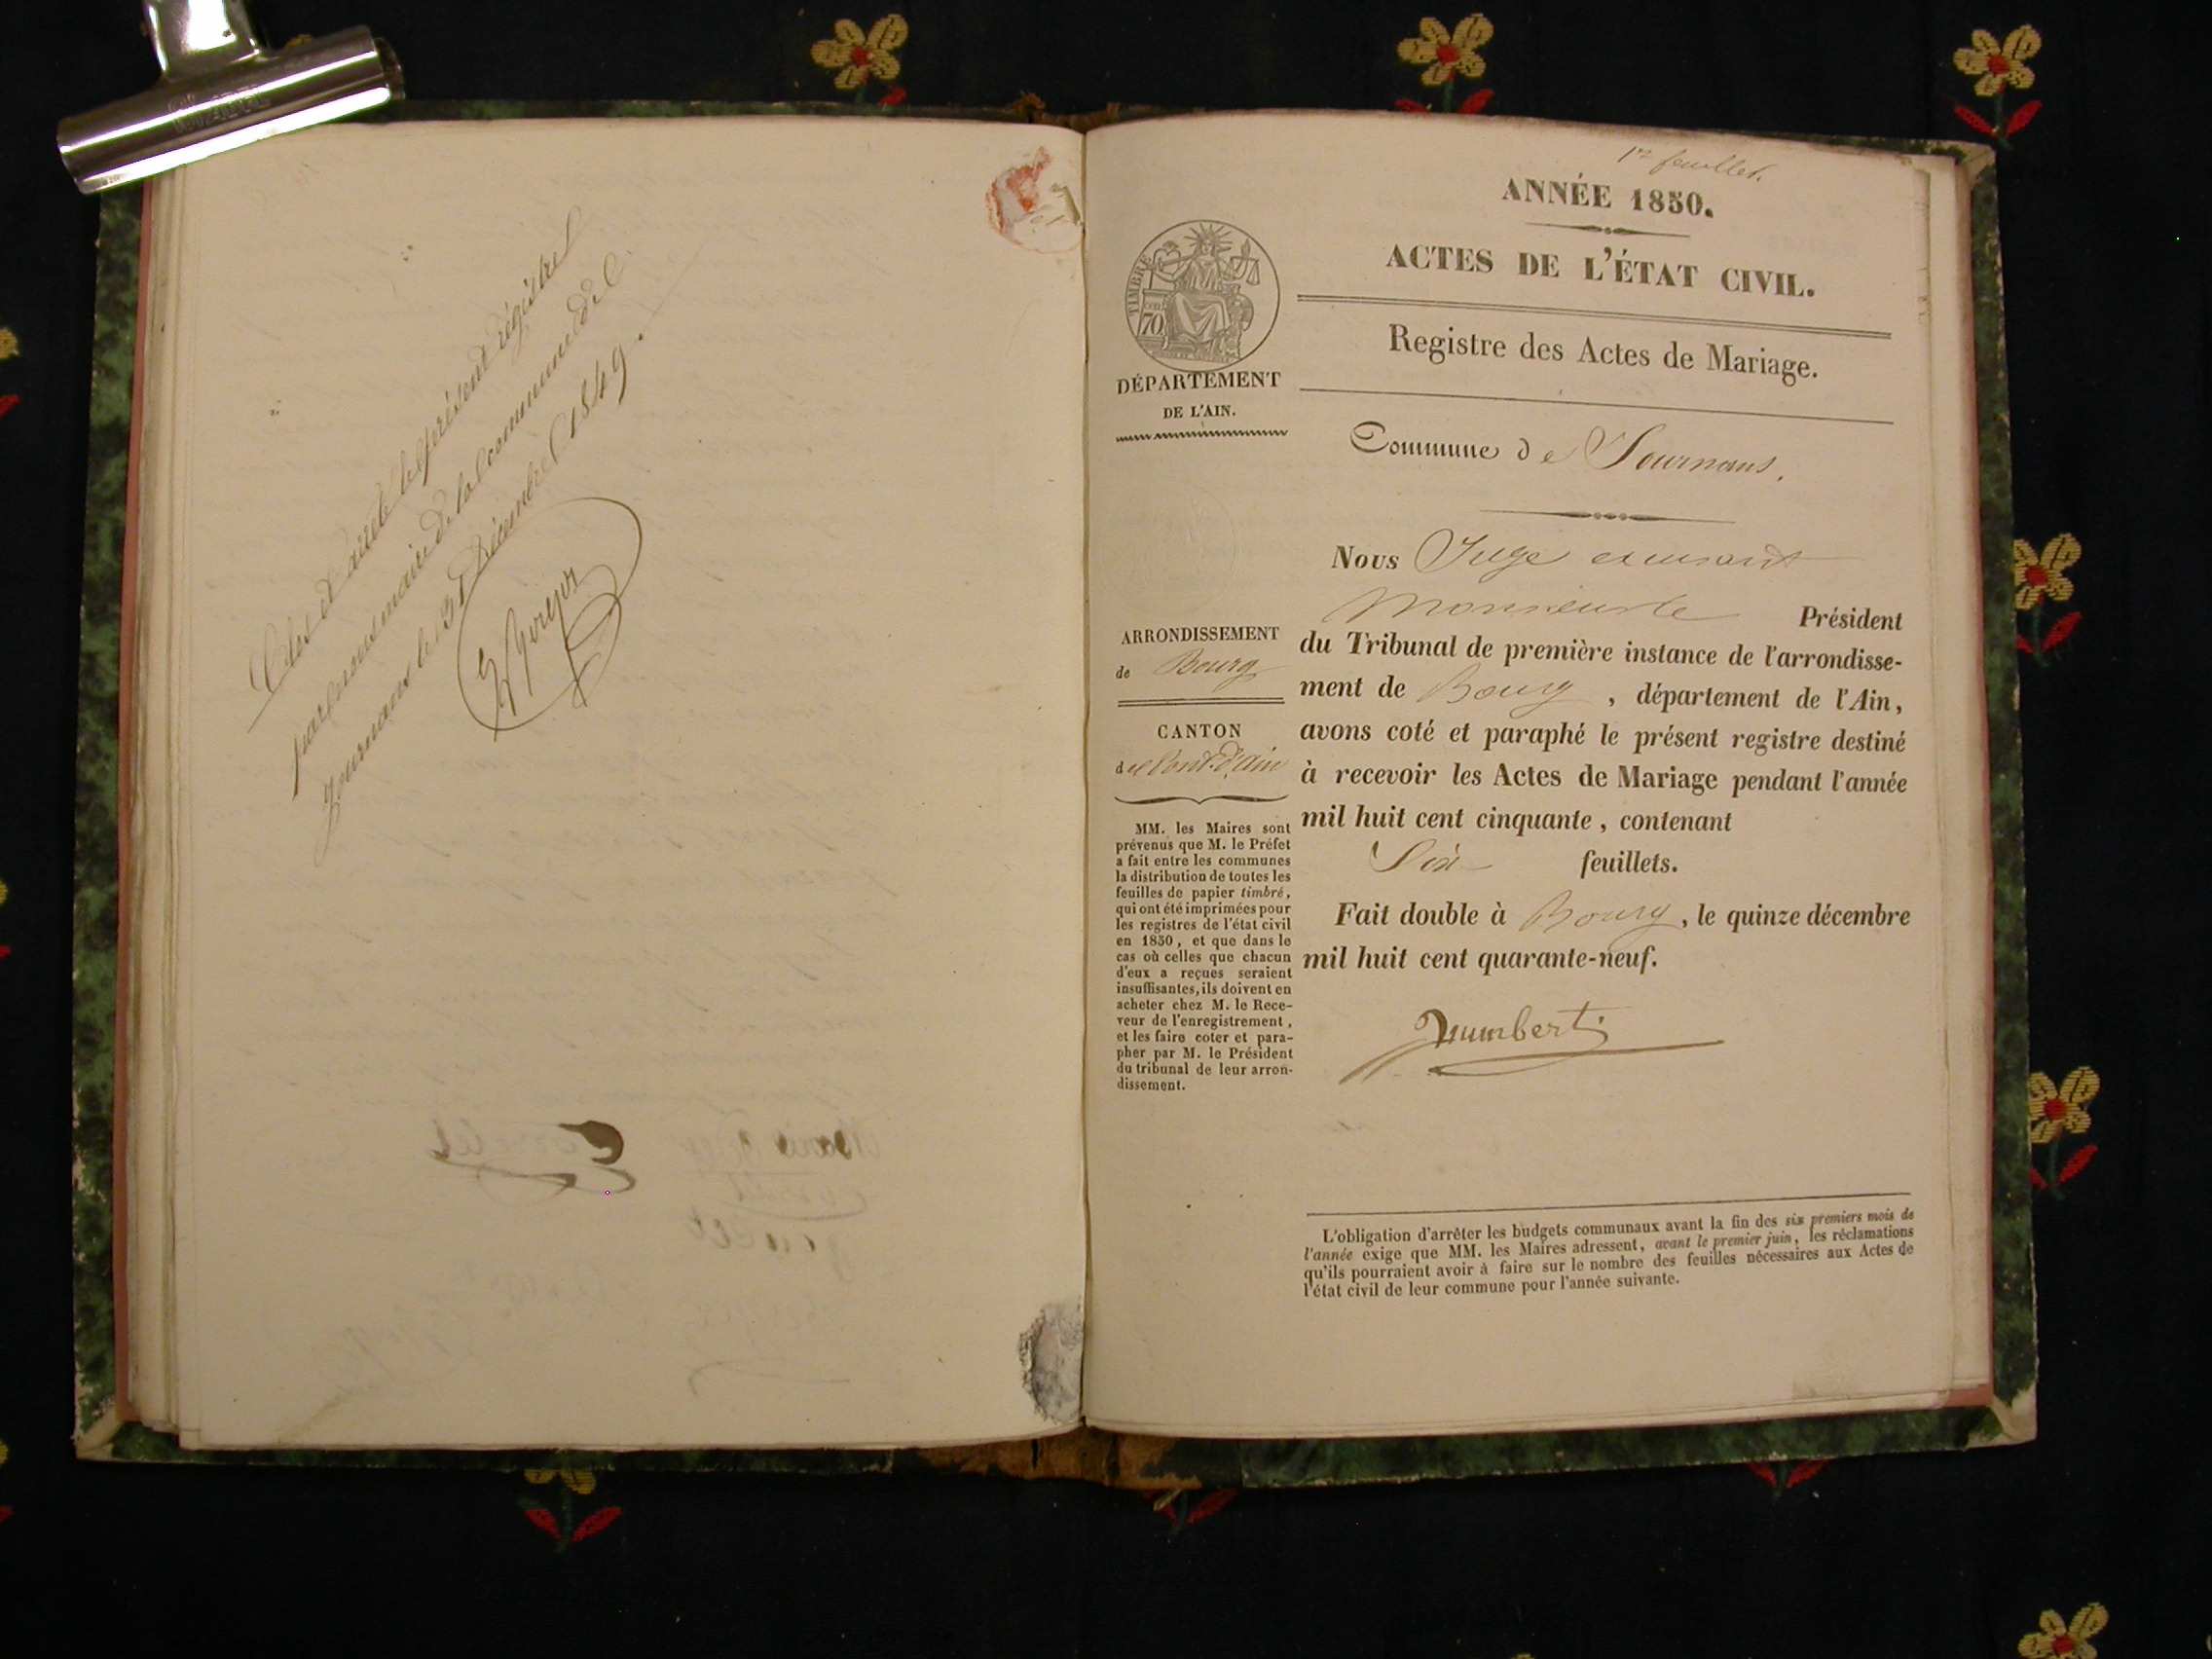 Clos et arrêté le présent régistre
par nous maire de la commune de
Journans le 31 Décembre 1849.
1er feuillet.
ANNÉE 1850.
ACTES DE L'ÉTAT CIVIL.
Registre des Actes de Mariage.
TIMBRE
70
DÉPARTEMENT
DE L'AIN.
Commune de Journans.
Nous Juge
Monsieur le Président
du Tribunal de première instance de l'arrondisse-
ment de Bourg, département de l'Ain,
avons coté et paraphé le présent registre destiné
à recevoir les Actes de Mariage pendant l'année
mil huit cent cinquante, contenant
Six feuillets.
Fait double à Bourg, le quinze décembre
mil huit cent quarante-neuf.
Humbert
ARRONDISSEMENT
de Bourg
CANTON
de Pont-d'ain
MM. les Maires sont
prévenus que M. le Préfet
a fait entre les communes
la distribution de toutes les
feuilles de papier timbré,
qui ont été imprimées pour
les registres de l'état civil
en 1850, et que dans le
cas où celles que chacun
d'eux a reçues seraient
insuffisantes, ils doivent en
acheter chez M. le Rece-
veur de l'enregistrement,
et les faire coter et para-
pher par M. le Président
du tribunal de leur arron-
dissement.
L'obligation d'arrêter les budgets communaux avant la fin des six premiers mois de
l'année exige que MM. les Maires adressent, avant le premier juin, les réclamations
qu'ils pourraient avoir à faire sur le nombre des feuilles nécessaires aux Actes de
l'état civil de leur commune pour l'année suivante.